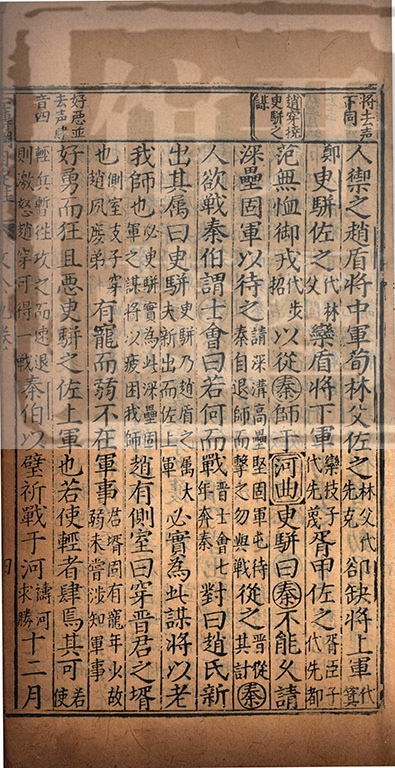 將去声下同
人禦之趙盾將中軍荀林父佐之林父代先克郤缺將上軍代箕
鄭臾駢佐之代林父欒盾將下軍欒枝子代先蔑胥甲佐之胥臣子代先都
趙穿撓臾駢之謀
范無恤御戎代步招以從秦師于河曲臾駢曰秦不能久請
深壘固軍以待之請深溝高壘堅固軍屯待秦自退師而擊之勿與戰從之晉從其計秦
人欲戰秦伯謂士會曰若何而戰晉士會七年奔秦對曰趙氏新
出其属曰臾駢臾駢乃趙盾之属大夫新出而佐上軍必實為此謀將以老
我師也必臾駢實為此深壘固軍之謀將以疲困我師趙有側室曰穿晉君之壻
也側室支子穿趙夙庶弟有寵而弱不在軍事君壻固有寵年少故弱未嘗涉知軍事
好惡並去声肆音四
好勇而狂且惡臾駢之佐上軍也若使輕者肆焉其可若使
輕兵暫往攻之而速退則激怒趙穿可得一戰秦伯以璧祈戰于河禱河求勝十二月